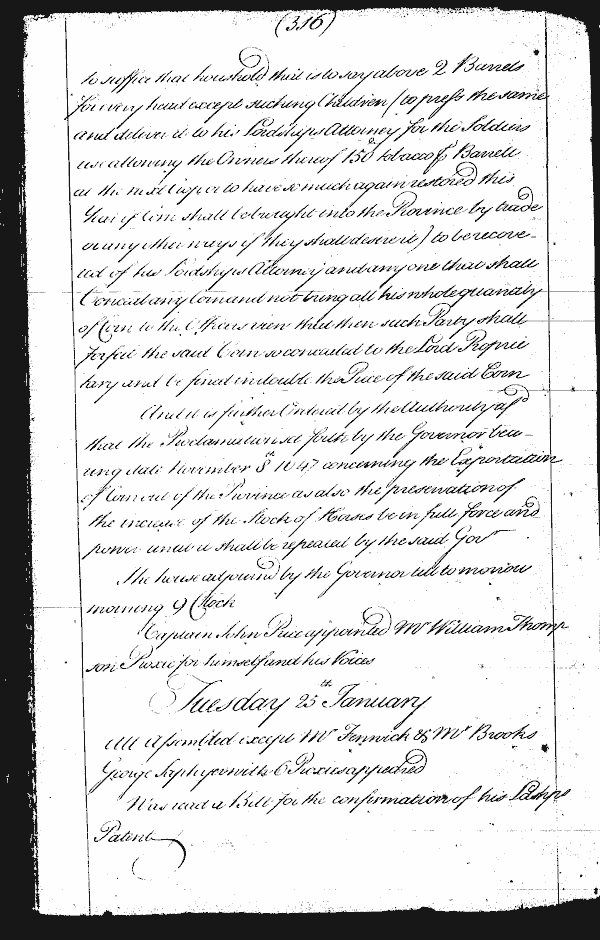 (316)
to suffice that household that is to say above 2 Barrels
for every head except sucking Children (to press the same
and deliver it to his Lordships Attorney for the Soldiers
use allowing the Owners thereof 150 tobacco Barrell
at the next Cropp or to have so much again restored this
Year if Corn shall be brought into the Province by trade
or any other ways if they shall desire it) to be recove-
red of his Lordships Attorney and any one that shall
Conceal any Corn and not bring all his whole quantity
of Corn to the Officers view that then such Party shall
forfeit the said Corn so concealed to the Lord Proprie
tary and be fined in double the Price of the said Corn
And it is further Ordered by the Authority afd
that the Proclamation set forth by the Governor bea-
ring date November 8th 1647 concerning the Exportation
of Corn out of the Province as also the preservation of
the increase of the Stock of Horses be in full force and
power until it shall be repealed by the said Govr
The house adjourned by the Governor till to morrow
morning 9 Clock
Captain John Price appointed Mr William Thomp
son Proxie for himself and his Voices
Tuesday 25th January
All Assembled except Mr Fenwick & Mr Brooks
George with 6 Proxies appeared
Was read a Bill for the confirmation of his Ldships
Patent